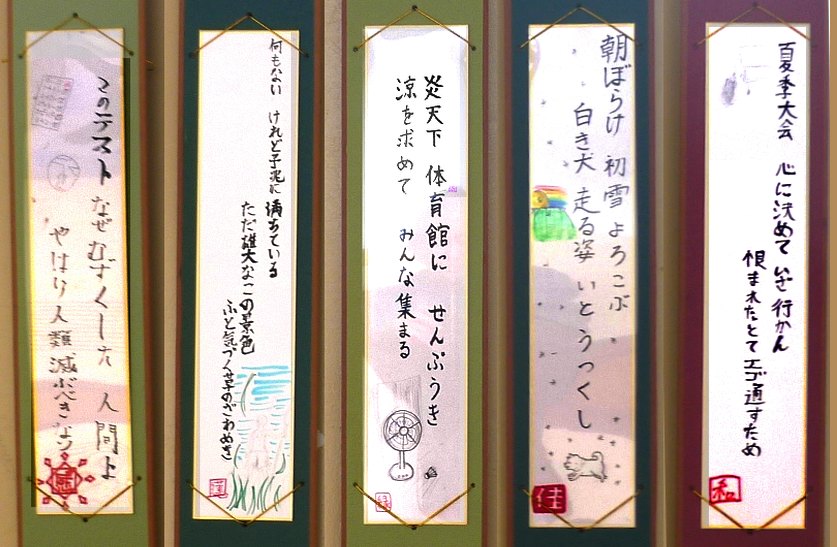 夏季大会 心に決めて いざ行かん
恨まれたとて エゴ通すため
和
朝ぼらけ 初雪 よろこぶ
白き犬 走る姿 いとうつくし
佳
炎天下 体育館に せんぷうき
涼を求めて みんな集まる
何もない けれど 満ちている
ただ雄大なこの景色
ふと気づく草のざわめき
このテスト なぜむずくした 人間よ
やはり人 滅ぶべきなり